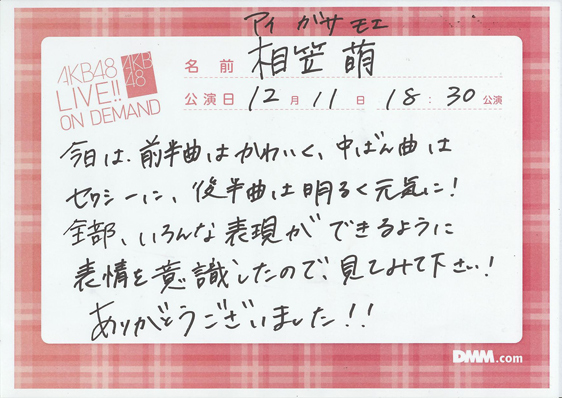 アイ ガサ モエ
AKB48
LIVE!!
ON DEMAND
AKB
48
名前 相笠 萌
公演日 12月 11日 18:30公演
今日は、前半曲はかわいく、中ばん曲は
セクシーに、後半曲は明るく元気に!
全部、いろんな表現ができるように
表情を意識したので、見てみて下さい!
ありがとうございました!!
DMM.com